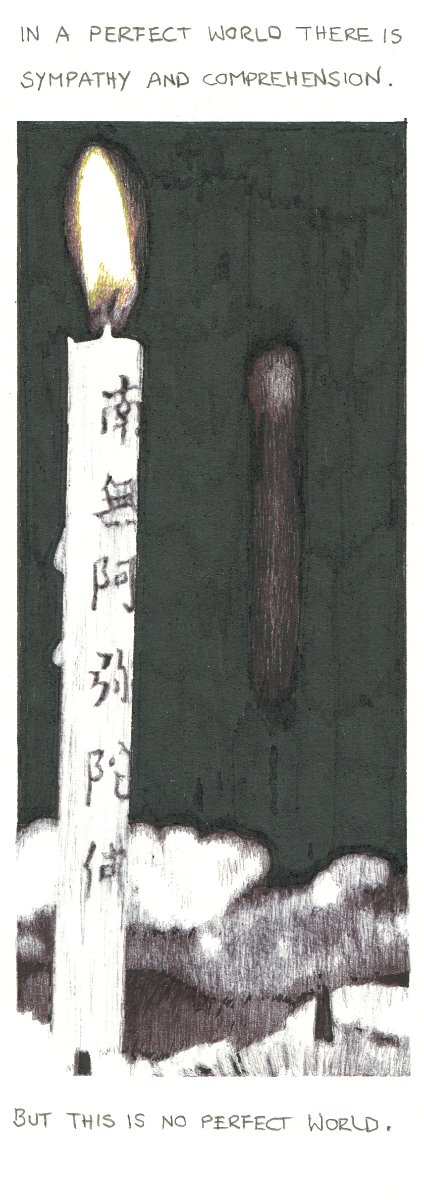 IN A PERFECT WORLD THERE IS
SYMPATHY AND COMPREHENSION.
南無阿弥陀佛
BUT THIS IS NO PERFECT WORLD.